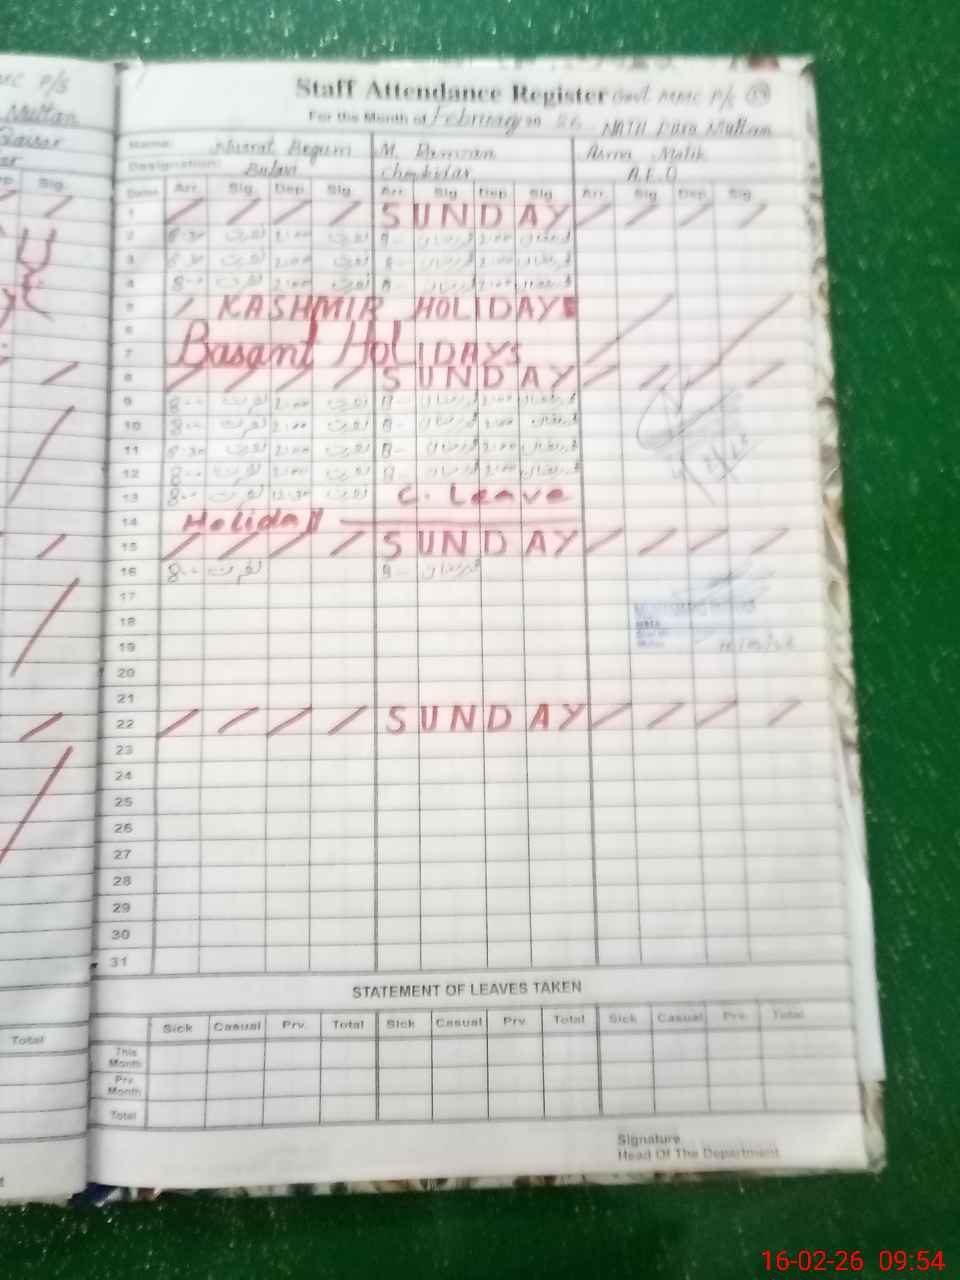 MC P/S
Multan
Total
Staff Attendance Register Govt MMC P/S
For the Month of February 20 26
Name: Nusrat Begum M. Ramzan Asma Malik
Designation: Bulavi Chowkidar A.E.O
Dates Arr. Sig. Dep. Sig. Arr. Sig. Dep. Sig. Arr. Sig. Dep. Sig.
1 SUNDAY
2 8:30 نصرت 2:00 نصرت 8 - رمضان 2:00 رمضان
3 8:30 نصرت 2:00 نصرت 8 - رمضان 2:00 رمضان
4 8:00 نصرت 2:00 نصرت 8 - رمضان 2:00 رمضان
5 KASHMIR HOLIDAY
6
7 Basant HOLIDAYS
8 SUNDAY
9 8:00 نصرت 2:00 نصرت 8 - رمضان 2:00 رمضان
10 8:00 نصرت 2:00 نصرت 8 - رمضان 2:00 رمضان
11 8:30 نصرت 2:00 نصرت 8 - رمضان 2:00 رمضان
12 8:00 نصرت 2:00 نصرت 8 - رمضان 2:00 رمضان
13 8:00 نصرت 12:30 نصرت C. Leave
14 Holiday
15 SUNDAY
16 8:00 نصرت 8 - رمضان
17
18
19
20
21
22 SUNDAY
23
24
25
26
27
28
29
30
31
STATEMENT OF LEAVES TAKEN
Sick Casual Prv. Total Sick Casual Prv. Total Sick Casual Prv. Total
This Month
Pre. Month
Total
Signature
Head Of The Department
16-02-26 09:54